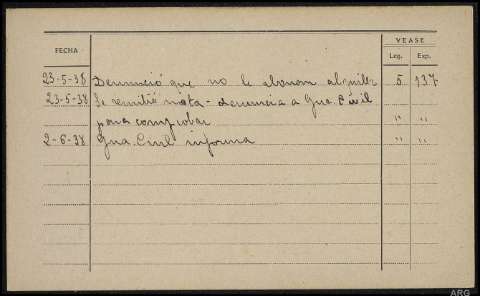 FECHA VEASE
Leg. Exp.
23-5-38 Denunció que no le abonan alquiler 5 137
23-5-38 Se remitió nota-denuncia a Gua. Civil
para comprobar " "
2-6-38 Gua. Civil informa " "
ARG